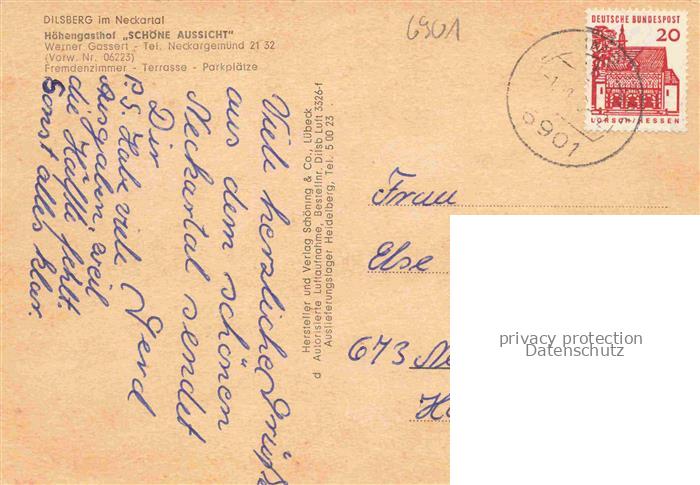 DILSBERG im Neckartal
Höhengasthof „SCHÖNE AUSSICHT"
Werner Gassert - Tel. Neckargemünd 21 32
(Vorw. Nr. 06223)
Fremdenzimmer - Terrasse - Parkplätze
Viele herzliche Grüße
aus dem schönen
Neckartal sendet
Dir
P.S. Habe viele
Ausgaben, weil
die Hälfte fehlt.
Sonst alles klar.
Hersteller und Verlag Schöning & Co., Lübeck
d Autorisierte Luftaufnahme, Bestellnr. Dilsb Luft 3326-f
Auslieferungslager Heidelberg, Tel. 5 00 23
6901
DEUTSCHE BUNDESPOST
20
LORSCH/HESSEN
6901
Frau
Else
673
privacy protection
Datenschutz